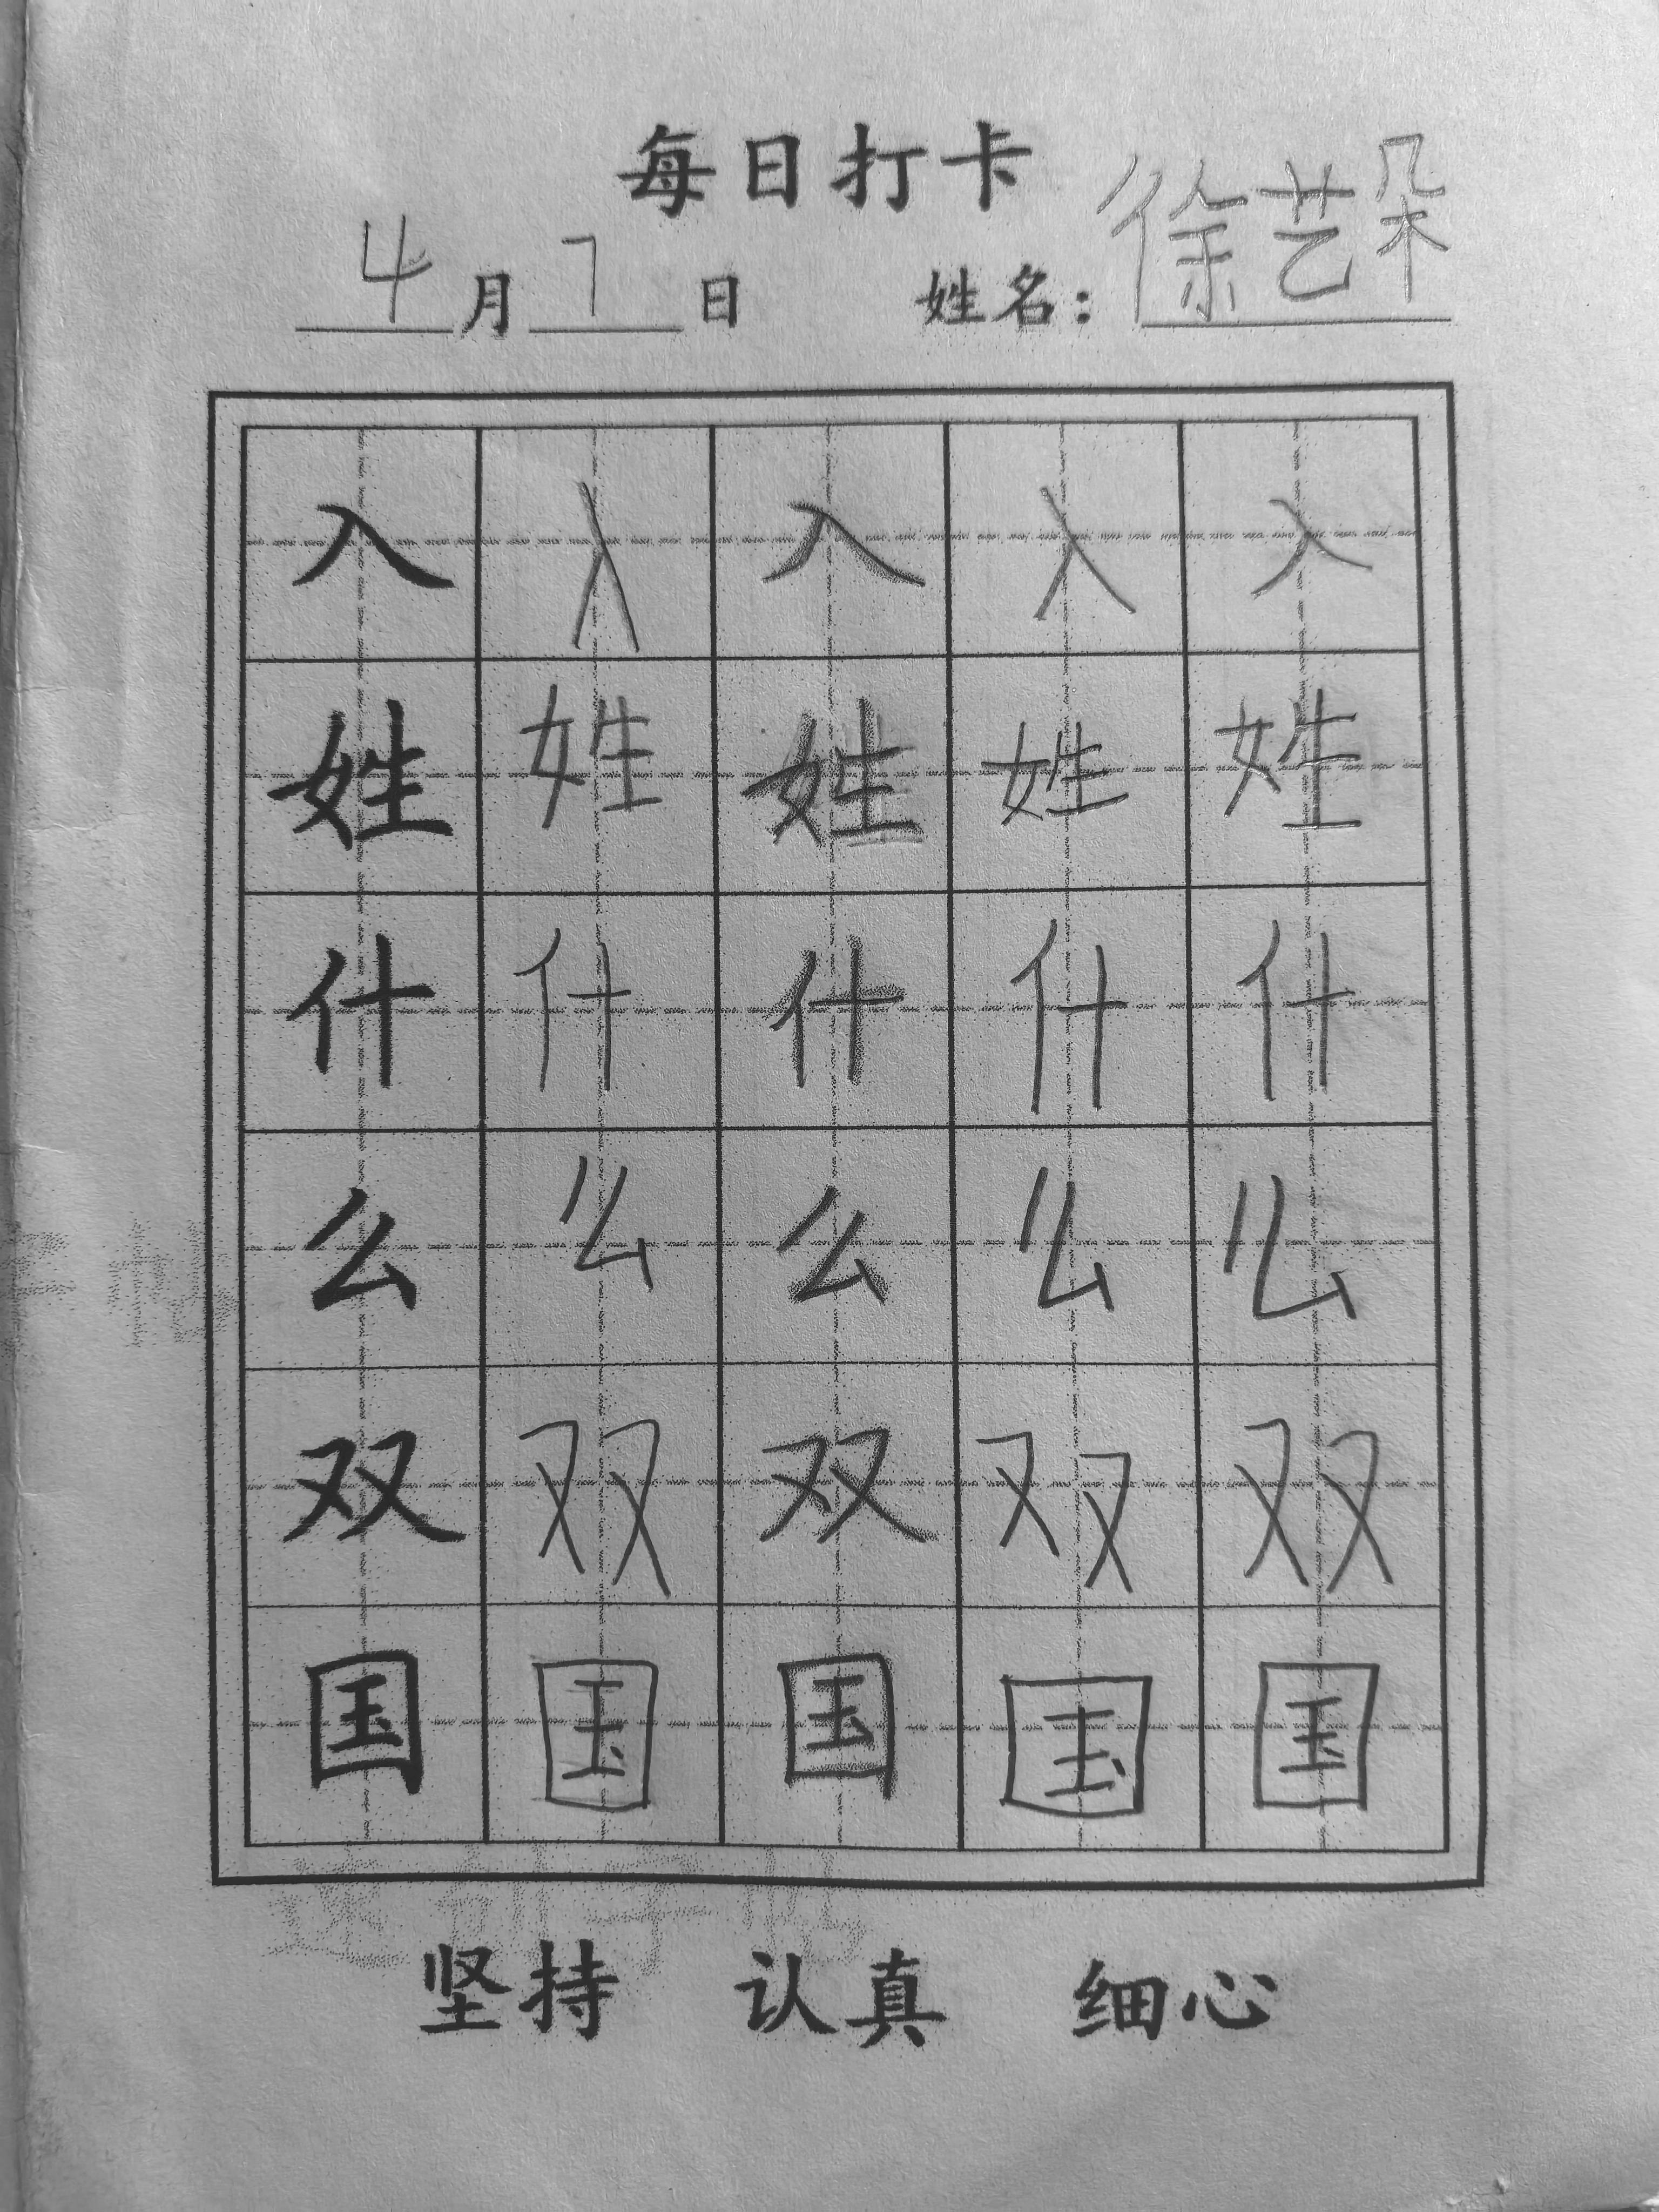 每日打卡
4月7日 姓名：徐艺朵
入 入 入 入 入
姓 姓 姓 姓 姓
什 什 什 什 什
么 么 么 么 么
双 双 双 双 双
国 国 国 国 国
坚持 认真 细心